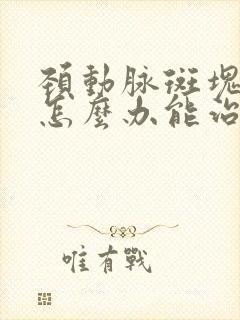 頚動脉斑塊
怎麼办能治
唯有戰